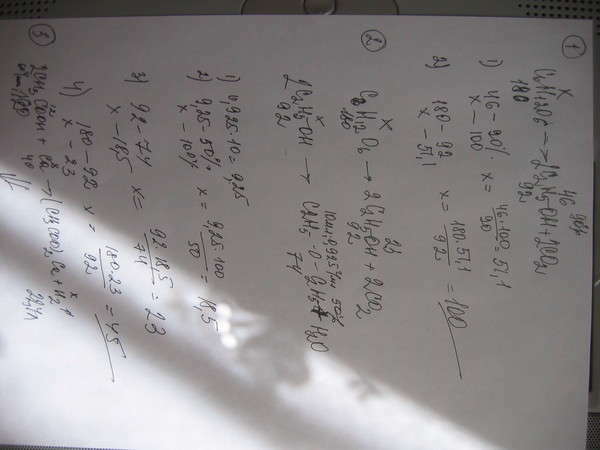 ①
x 46
C₆H₁₂O₆ → 2C₂H₅OH + 2CO₂
180 92
1) 46 – 90%
x – 100 x = 46·100/90 = 51,1
2) 180 – 92
x – 51,1 x = 180·51,1/92 = 100
②
x 23
C₆H₁₂O₆ → 2C₂H₅OH + 2CO₂
180 92
x 50%
2C₂H₅OH → C₂H₅-O-C₂H₅ + H₂O
92 74
1) 0,925·10 = 9,25
2) 9,25 – 50%
x – 100% x = 9,25·100/50 = 18,5
3) 92 – 74
x – 18,5 x = 92·18,5/74 = 23
4) 180 – 92
x – 23 x = 180·23/92 = 45
③
2CH₃COOH + Ca → (CH₃COO)₂Ca + H₂
40